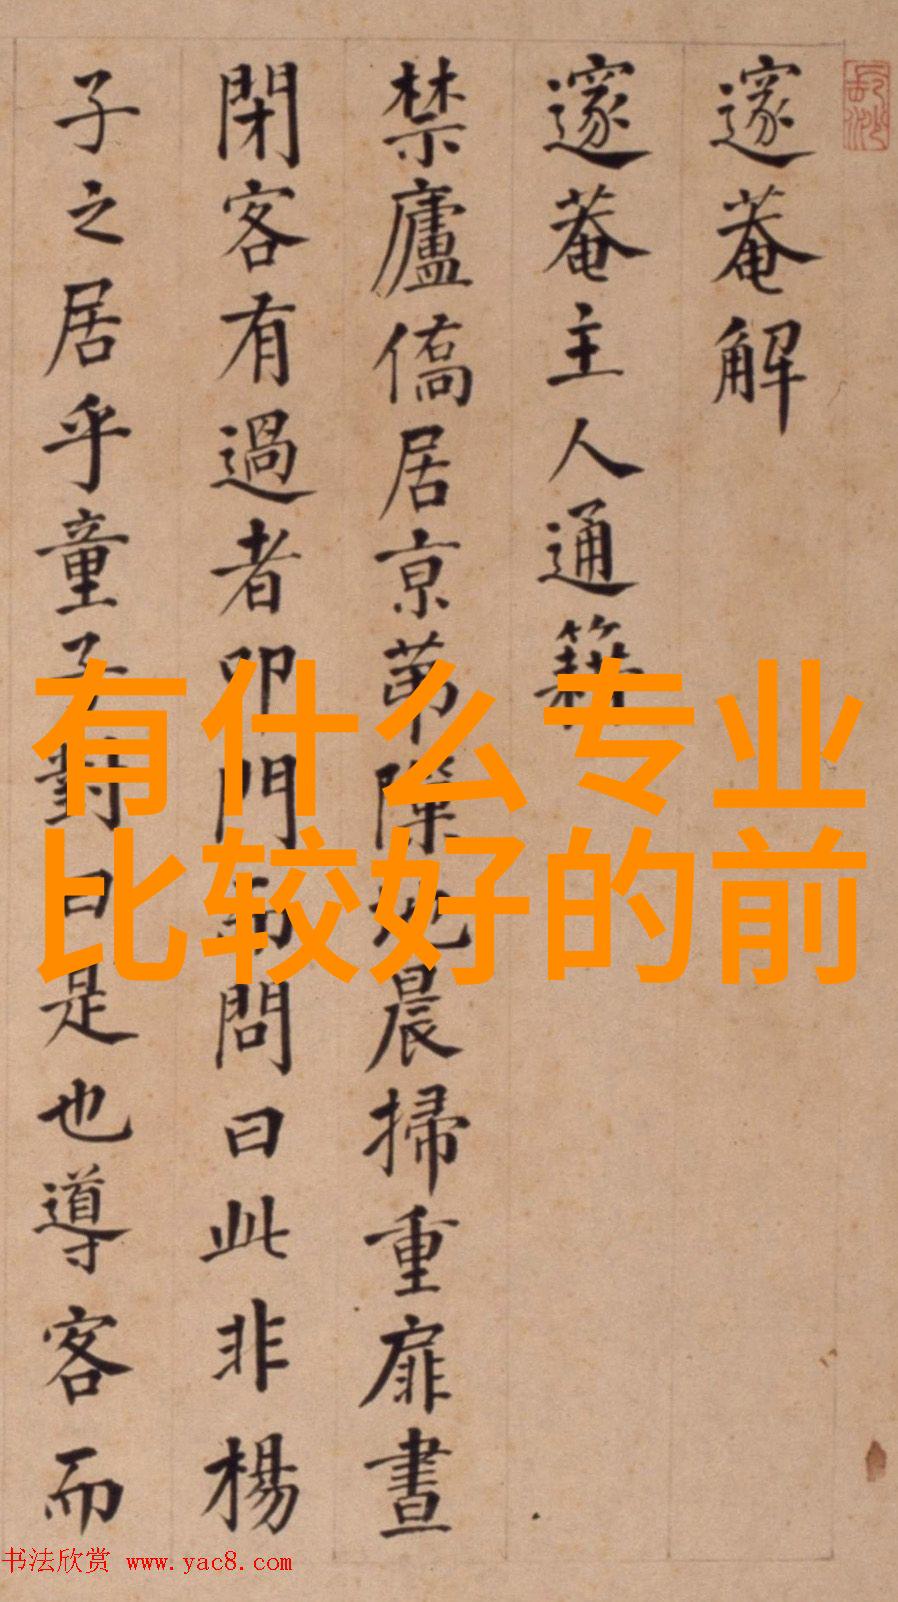 邃菴解
邃菴主人通籍
禁廬僑居京苐隙地晨掃重扉晝
閉客有過者叩門而問曰此非楊
子之居乎童子對曰是也導客而
有什么专业
比较好的前
书法欣赏 www.yac8.com